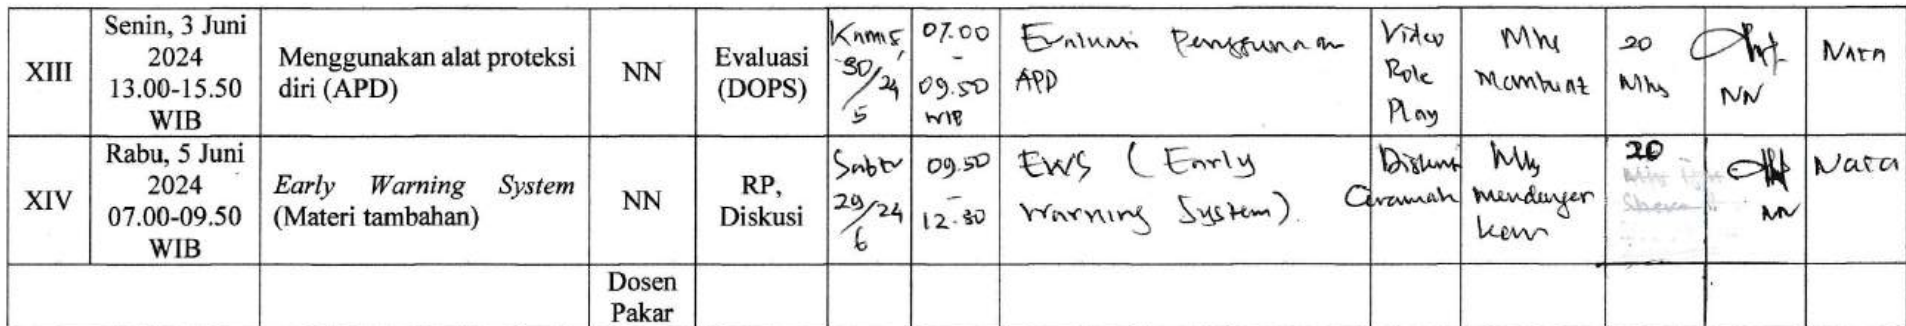 XIII
Senin, 3 Juni
2024
13.00-15.50
WIB
Menggunakan alat proteksi
diri (APD)
NN
Evaluasi
(DOPS)
Kamis,
30/24
5
07.00
-
09.50
WIB
Evaluasi Penggunaan
APD
Video
Role
Play
Mhs
Membuat
20
Mhs
NN
Nata
XIV
Rabu, 5 Juni
2024
07.00-09.50
WIB
Early Warning System
(Materi tambahan)
NN
RP,
Diskusi
Sabtu
29/24
6
09.50
-
12.30
EWS ( Early
Warning System).
Diskusi
Ceramah
Mhs
mendengar
kan
20
NN
Nata
Dosen
Pakar